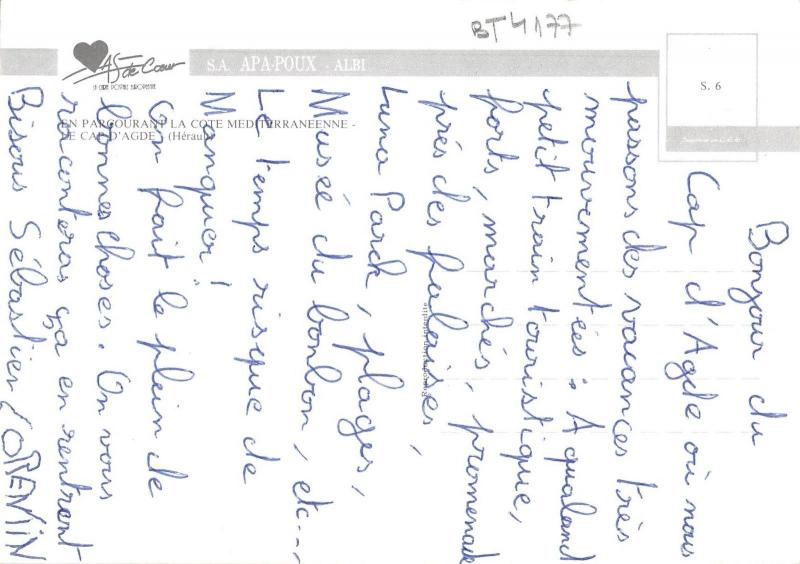 BT4177
AS de Cœur
LA CARTE POSTALE EUROPEENNE
S.A. APA-POUX - ALBI
S. 6
EN PARCOURANT LA COTE MEDITERRANEENNE -
LE CAP D'AGDE - (Hérault)
Bonjour du
Cap d'Agde où nous
passons des vacances très
mouvementées : Aqualand
petit train touristique,
forts, marchés, promenade
près des falaises,
Luna Parck, plages,
Musée du bonbon, etc...,
Le temps risque de
Manquer !
On fait le plein de
bonnes choses. On vous
racontera ça en rentrant
Bisous Sébastien CORENTIN